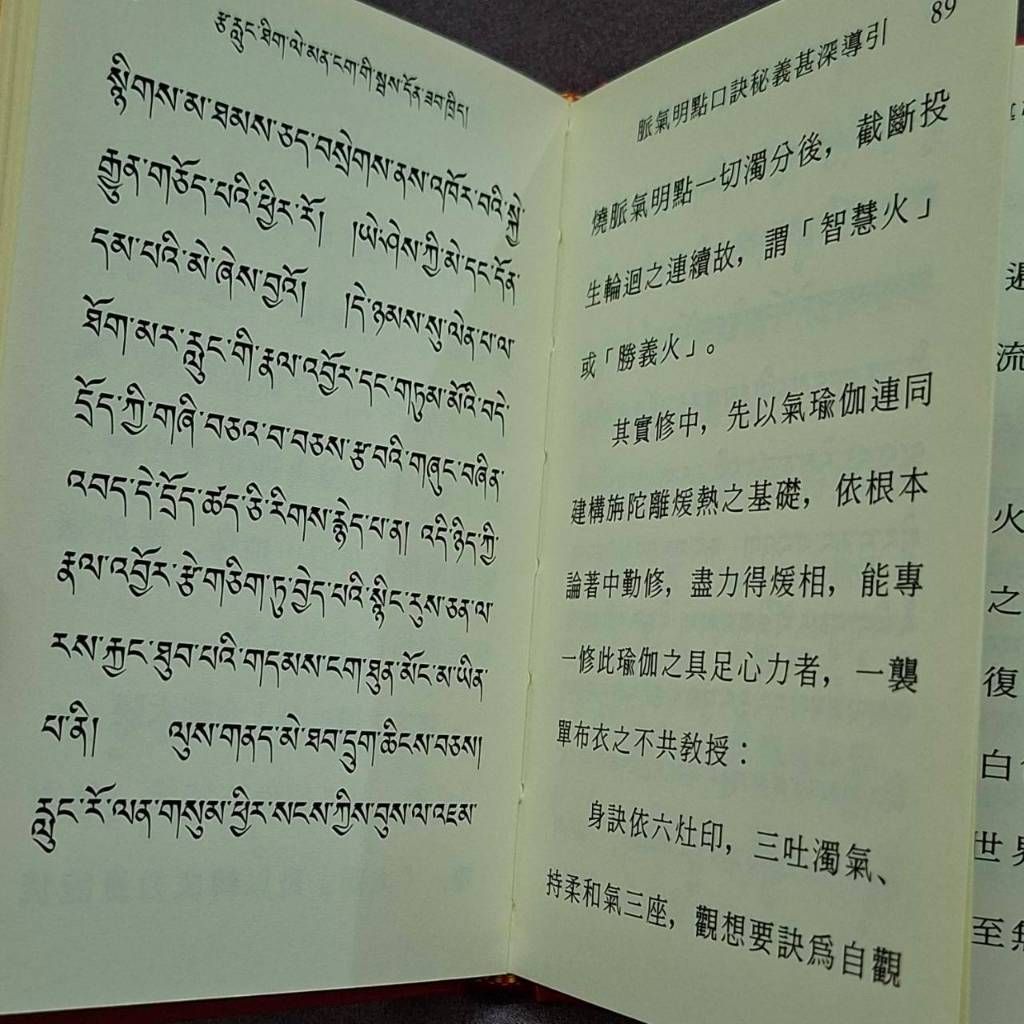 རྩ་རླུང་ཐིག་ལེ་མན་ངག་གི་སྦས་དོན་ཟབ་ཁྲིད།
སྙིགས་མ་ཐམས་ཅད་བསྲེགས་ནས་འཁོར་བའི་སྐྱེ་
རྒྱུན་གཅོད་པའི་ཕྱིར་རོ། །ཡེ་ཤེས་ཀྱི་མེ་དང་དོན་
དམ་པའི་མེ་ཞེས་བྱའོ། །དེ་ཉམས་སུ་ལེན་པ་ལ་
ཐོག་མར་རླུང་གི་རྣལ་འབྱོར་དང་གཏུམ་མོའི་བདེ་
དྲོད་ཀྱི་གཞི་བཅའ་བ་བཅས་རྩ་བའི་གཞུང་བཞིན་
འབད་དེ་དྲོད་ཚད་ཅི་རིགས་རྙེད་པ་ན། འདི་ཉིད་ཀྱི་
རྣལ་འབྱོར་རྩེ་གཅིག་ཏུ་བྱེད་པའི་སྙིང་རུས་ཅན་ལ་
རས་རྐྱང་ཐུབ་པའི་གདམས་ངག་ཐུན་མོང་མ་ཡིན་
པ་ནི། ལུས་གནད་མེ་ཐབ་དྲུག་ཆིངས་བཅས།
རླུང་རོ་ལན་གསུམ་ཕྱིར་སངས་ཀྱིས་བུས་ལ་འཇམ་
89
脈氣明點口訣秘義甚深導引
燒脈氣明點一切濁分後，截斷投
生輪迴之連續故，謂「智慧火」
或「勝義火」。
其實修中，先以氣瑜伽連同
建構旃陀離煖熱之基礎，依根本
論著中勤修，盡力得煖相，能專
一修此瑜伽之具足心力者，一襲
單布衣之不共教授：
身訣依六灶印，三吐濁氣、
持柔和氣三座，觀想要訣為自觀
流
火
之
復
白
世界
至無